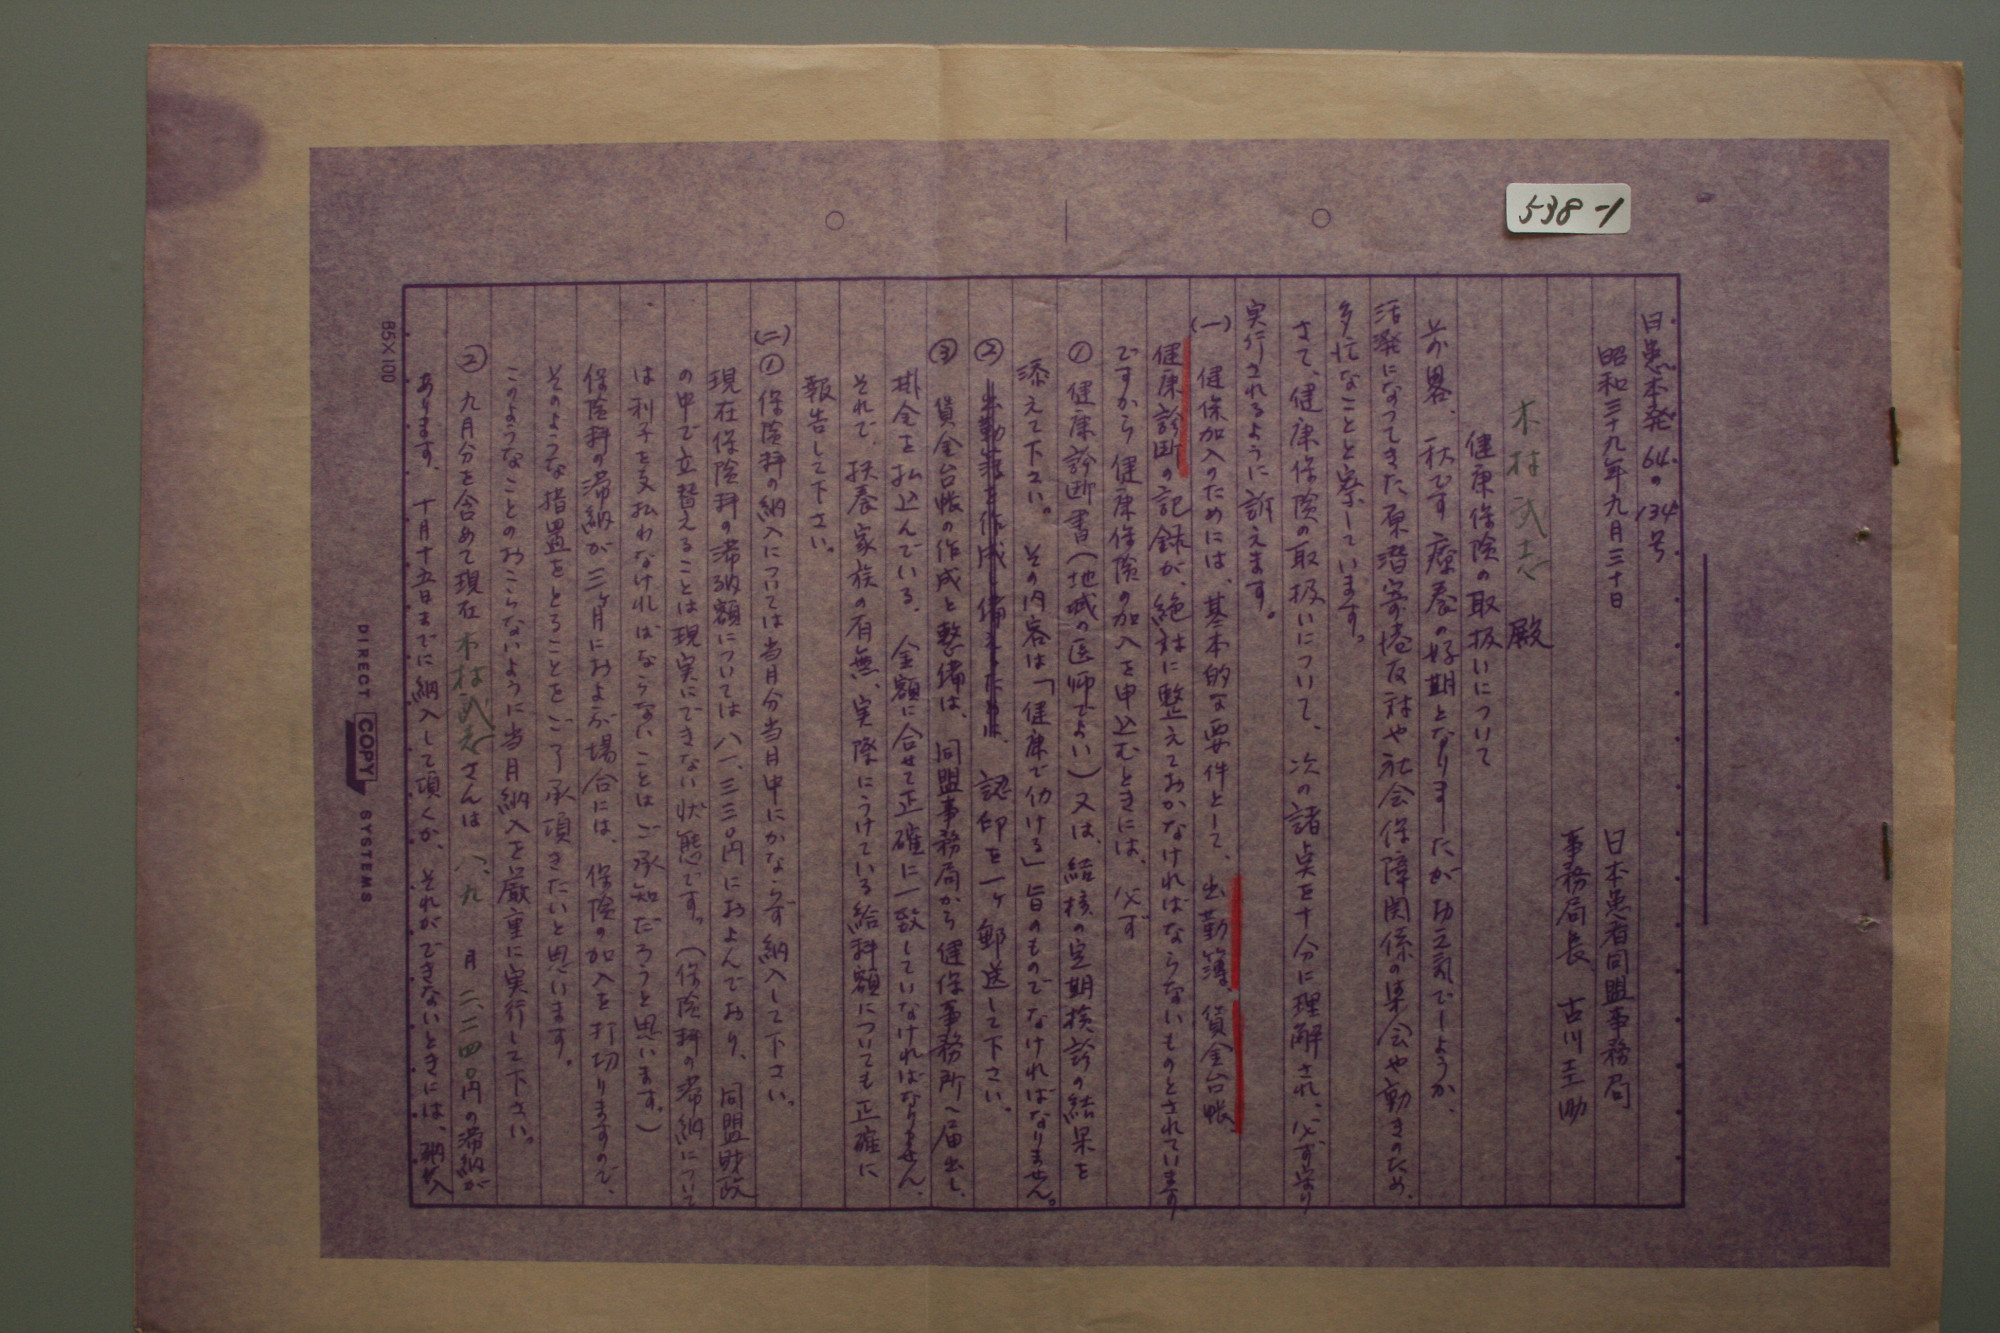 538-1
日患本発64の134号
昭和三十九年九月三十日
日本患者同盟事務局
事務局長 古川
木村武志 殿
健康保険の取扱いについて
前略、秋です 療養の好期となりましたがお元気でしょうか。
活発になってきた原潜寄港反対や社会保障関係の集会や動きのため、
多忙なことと察しています。
さて、健康保険の取扱いについて、次の諸点を十分に理解され、必ず守り
実行されるように訴えます。
(一) 健保加入のためには、基本的な要件として、出勤簿、賃金台帳
健康診断の記録が、絶対に整えておかなければならないものとされています
ですから健康保険の加入を申込むときには、必ず
① 健康診断書(地域の医師でよい)又は、結核の定期検診の結果を
添えて下さい。その内容は「健康で仂ける」旨のものでなければなりません。
② 出勤簿を作成し備えるために、認印を一ヶ郵送して下さい。
③ 賃金台帳の作成と整備は、同盟事務局から健保事務所へ届出し、
掛金を払込んでいる、金額に合せて正確に一致していなければなりません。
それで、扶養家族の有無、実際にうけている給料額についても正確に
報告して下さい。
(二) ① 保険料の納入については当月分当月中にかならず納入して下さい。
現在保険料の滞納額については八一、三三〇円におよんでおり、同盟財政
の中で立替えることは現実にできない状態です。(保険料の滞納について
は利子を支払わなければならないことはご承知だろうと思います。)
保険料の滞納が三ヶ月におよぶ場合には、保険の加入を打切りますので、
そのような措置をとることをご了承頂きたいと思います。
このようなことのおこらないように当月納入を厳重に実行して下さい。
② 九月分を含めて現在木村武志さんは 八、九 月 二、二四〇円の滞納が
あります。十月十五日までに納入して頂くか、それができないときには、納入
85×100
DIRECT COPY SYSTEMS